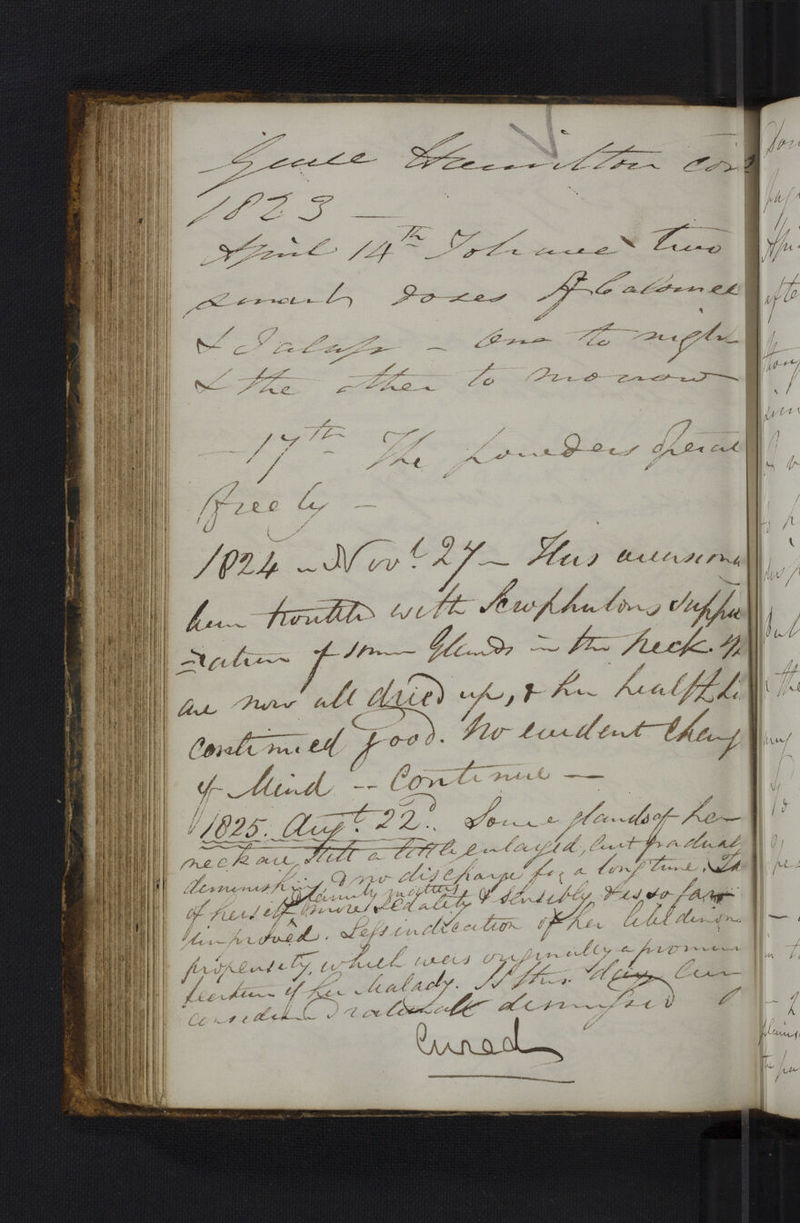 Hamilton con
1823 —
April 14th To have two
smart doses of Calomel
& Jalap – one to night
& the other to morrow
— 17th The powders operat
freely —
1824 – Novr 27 – Has occasiona
been troubled with Scrophulous suppu
=ration of some Glands in the Neck. Th
are now all dried up, & her health has
continued good. No evident chang
of Mind -- Continue —
1825. Augt. 22d. Some glands of her
neck are still a little enlarged, but gradual
deminishing, & no discharge for a long time.
of herself & family matters
more sedately & sensibly & is so far
improved. Less indication of her libidinous
propensity, which was originally a promin
feature of her Malady. Is this day
considered rational dismissed
Cured